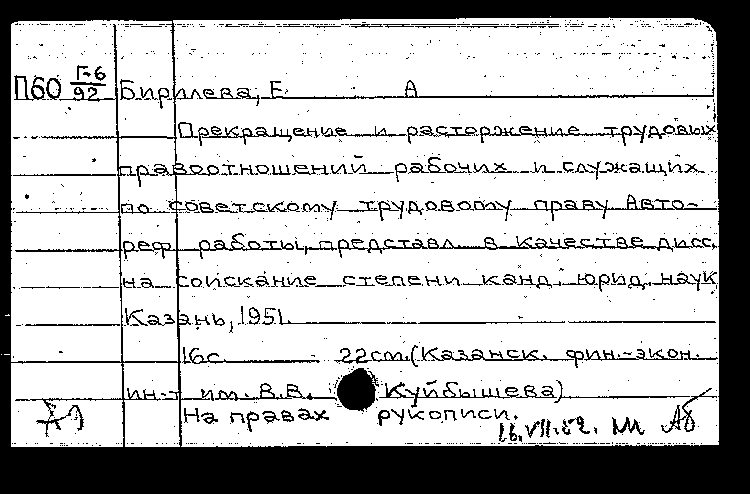 П60 Г-6/92 Бирилева, Е А
Прекращение и расторжение трудовых
правоотношений рабочих и служащих
по советскому трудовому праву Авто-
реф работы, представл. в качестве дисс.
на соискание степени канд. юрид. наук
Казань, 1951.
16с. 22cm. (Казанск. фин.-экон.
ин-т им. В.В. Куйбышева)
На правах рукописи.
16.VII.52.